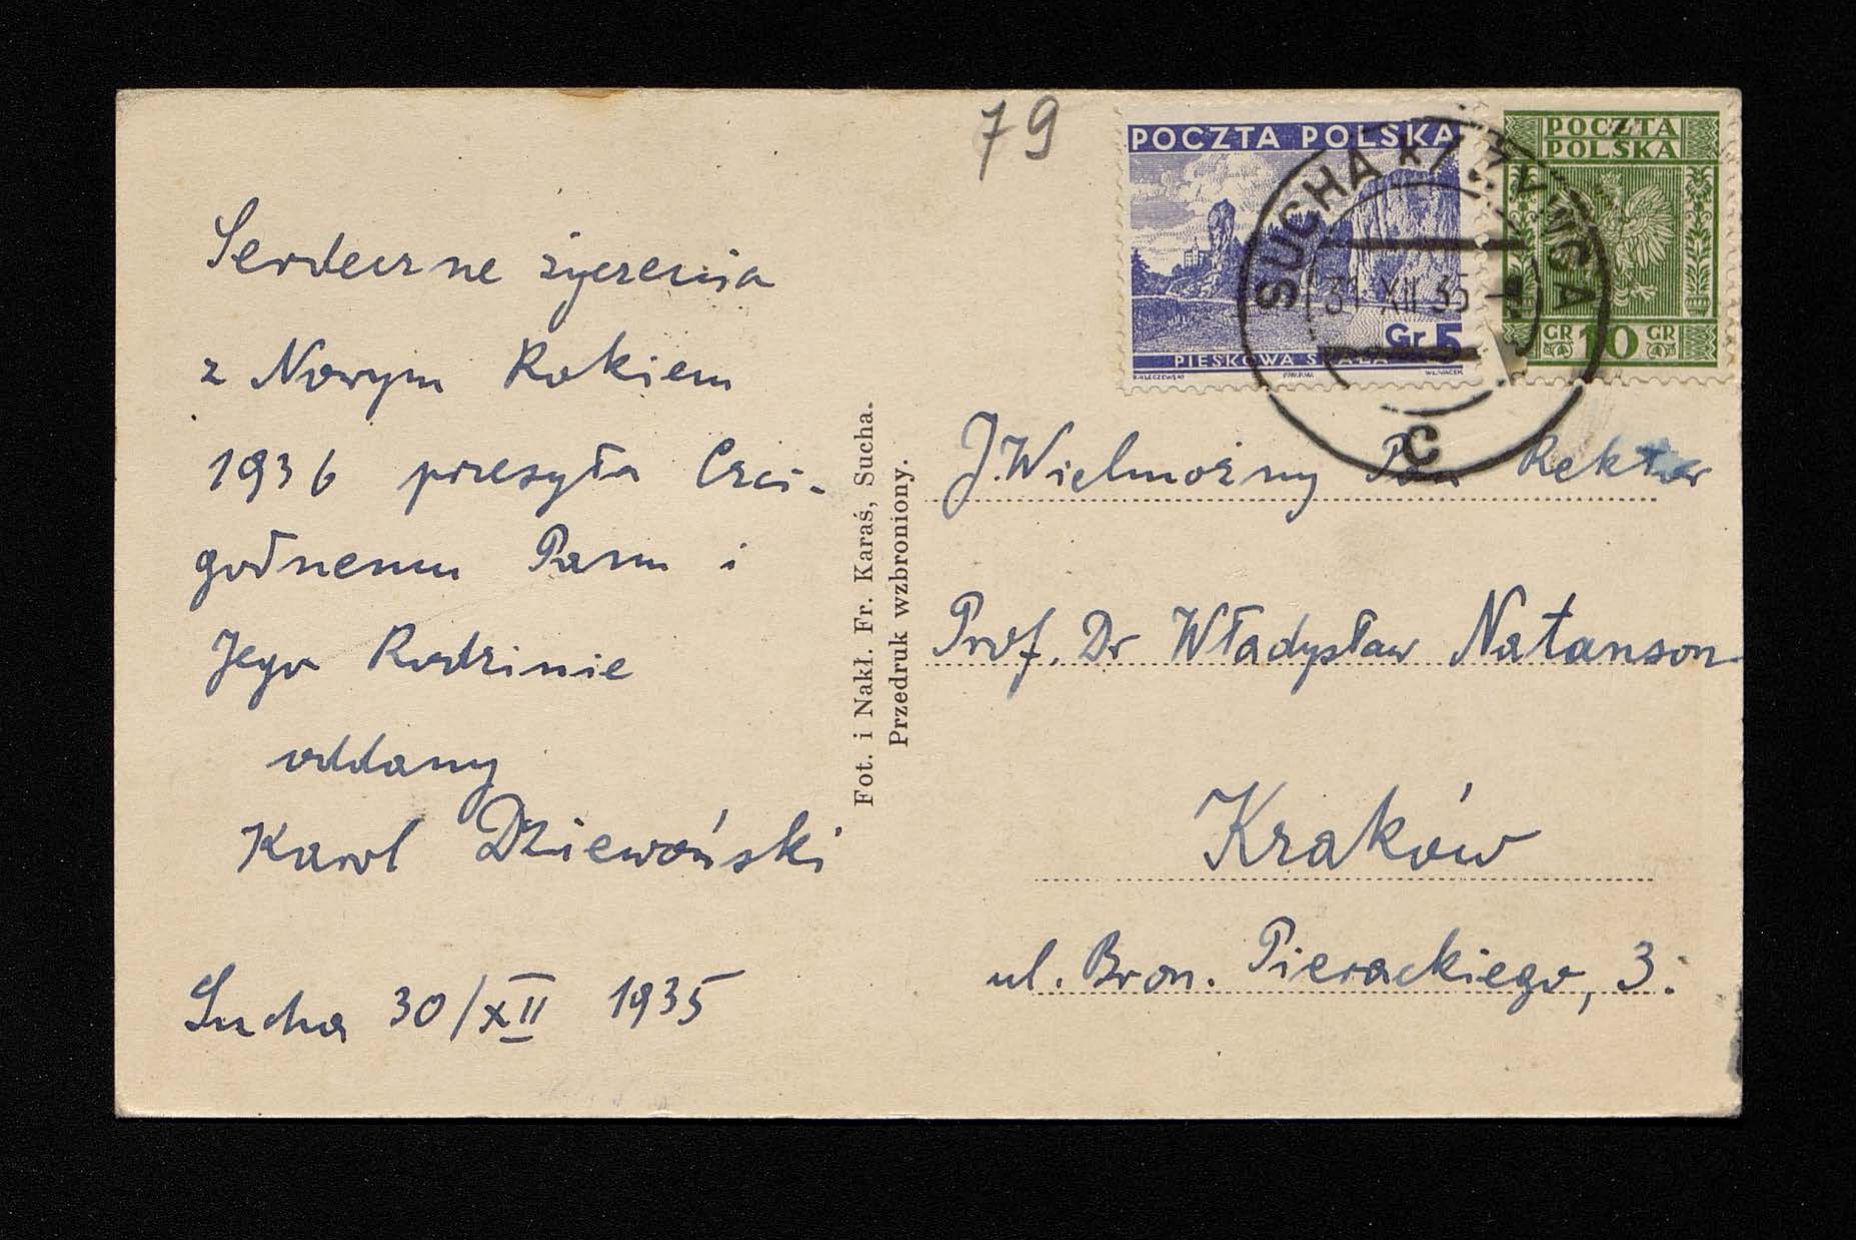 79
Serdeczne życzenia
z Nowym Rokiem
1936 przesyła Czci-
godnemu Panu i
Jego Rodzinie
oddany
Karol Dziewoński
Sucha 30/XII 1935
Fot. i Nakł. Fr. Karaś, Sucha.
Przedruk wzbroniony.
POCZTA POLSKA
Gr 5
PIESKOWA SKAŁA
POCZTA
POLSKA
GR 10 GR
SUCHA * ŻYWCA
31 XII 35
C
J. Wielmożny Pan Rektor
Prof. Dr Władysław Natanson
Kraków
ul. Bron. Pierackiego, 3.